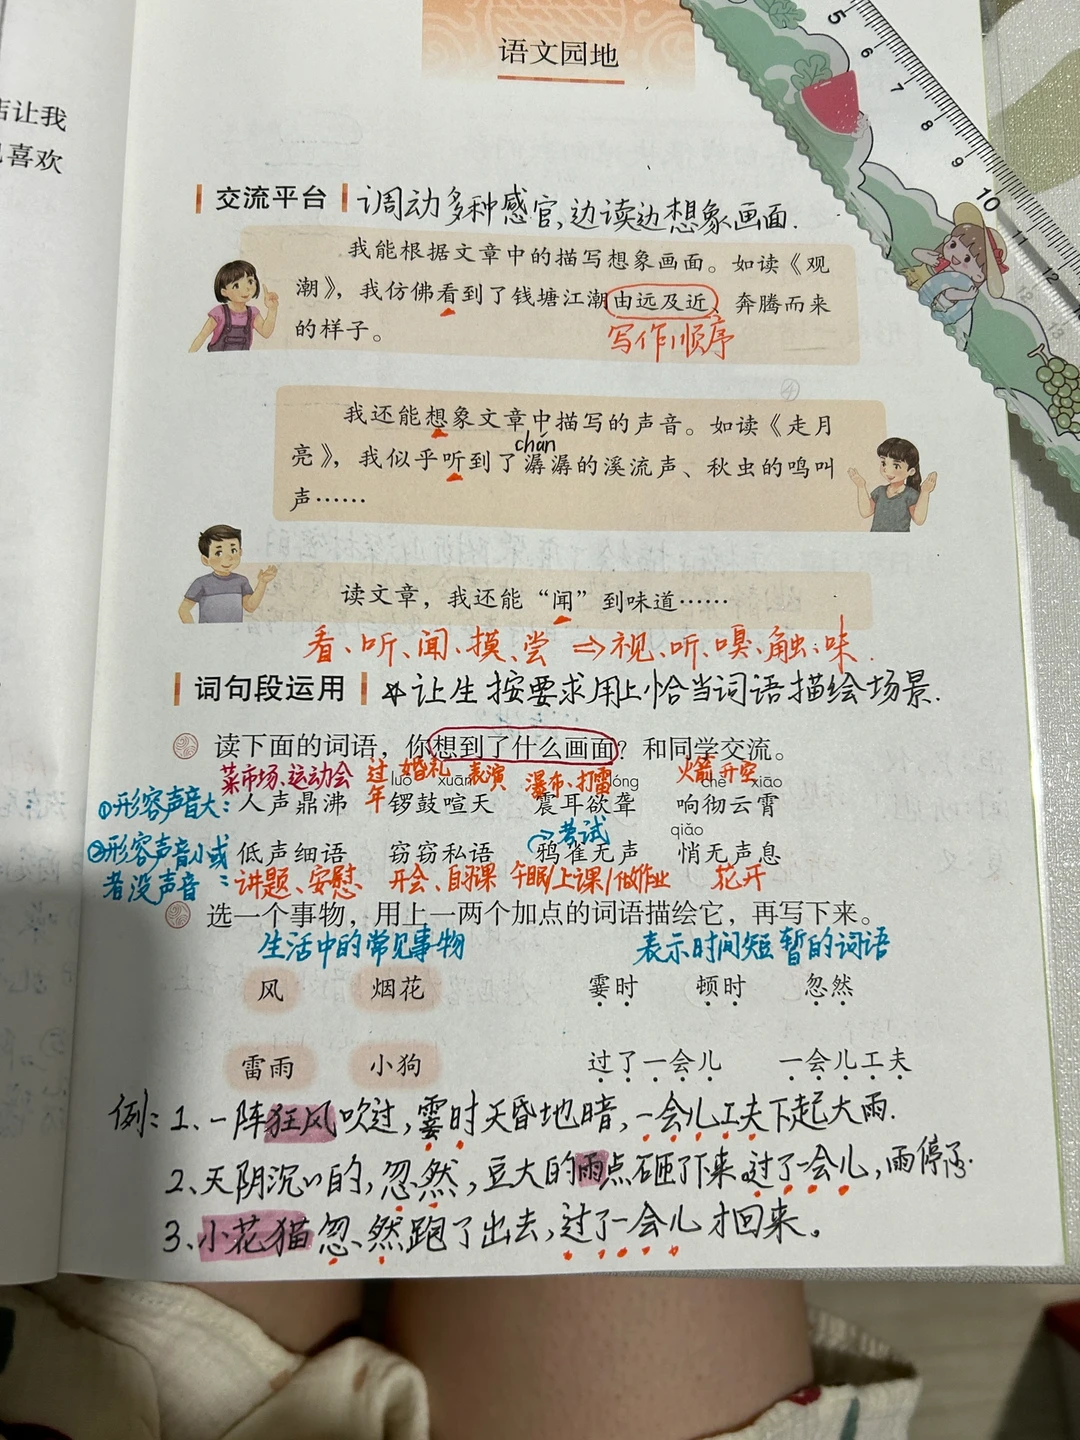 店让我
喜欢
5 6 7 8 9 10 11 12
语文园地
交流平台 调动多种感官、边读边想象画面.
我能根据文章中的描写想象画面。如读《观
潮》，我仿佛看到了钱塘江潮由远及近、奔腾而来
的样子。
写作顺序
④
我还能想象文章中描写的声音。如读《走月
chán
亮》，我似乎听到了潺潺的溪流声、秋虫的鸣叫
声……
读文章，我还能“闻”到味道……
看、听、闻、摸、尝 ⇒ 视、听、嗅、触、味.
词句段运用 ☆让生按要求用上恰当词语描绘场景.
读下面的词语，你想到了什么画面？和同学交流。
菜市场、运动会 过年 婚礼 表演 瀑布、打雷 火箭升空
luó xuān lóng chè xiāo
①形容声音大：人声鼎沸 锣鼓喧天 震耳欲聋 响彻云霄
→考试 qiǎo
②形容声音小或 低声细语 窃窃私语 鸦雀无声 悄无声息
者没声音： 讲题、安慰 开会、自习课 午眠/上课/做作业 花开
选一个事物，用上一两个加点的词语描绘它，再写下来。
生活中的常见事物 表示时间短暂的词语
风 烟花 霎时 顿时 忽然
雷雨 小狗 过了一会儿 一会儿工夫
例：1、一阵狂风吹过，霎时天昏地暗，一会儿工夫下起大雨.
2、天阴沉〃的，忽然，豆大的雨点砸了下来。过了一会儿，雨停了.
3、小花猫忽然跑了出去，过了一会儿才回来。